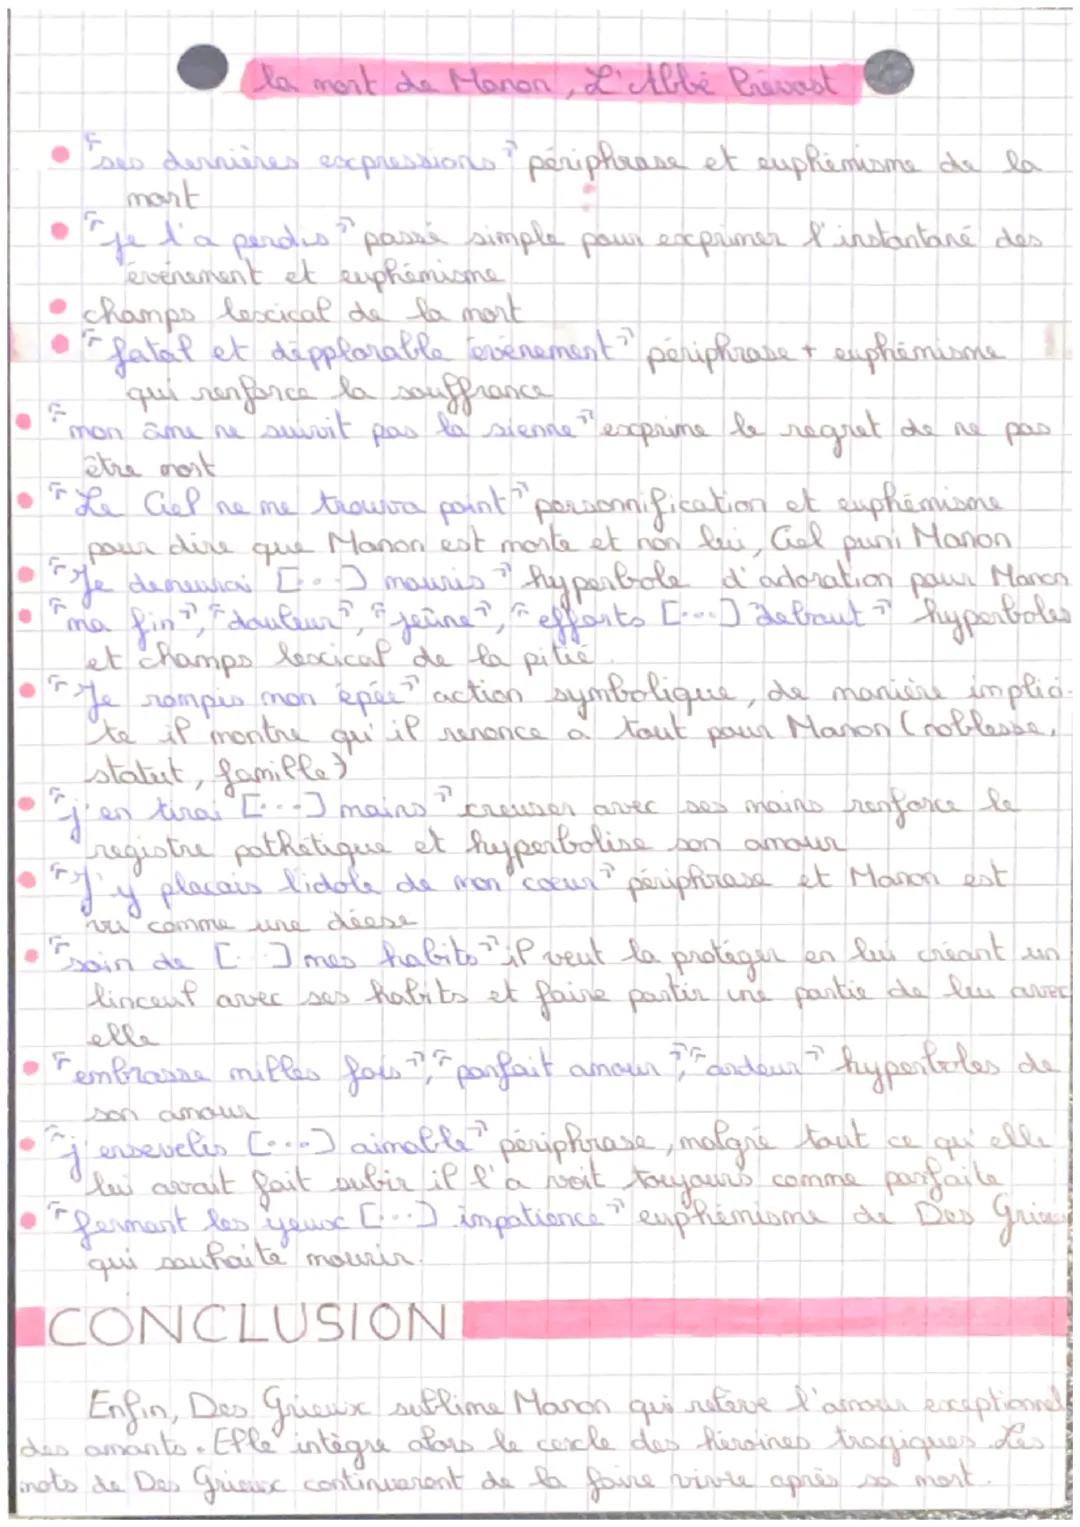 la mort de Manon, L'Abbé Prévost
• "ses dernières expressions" périphrase et euphémisme de la
mort
• "je l'a perdis" passé simple pour exprimer l'instantané des
évènement et euphémisme
• champs lexical de la mort
• "fatal et dépplorable evènement" périphrase + euphémisme
qui renforce la souffrance
• "mon âme ne suivit pas la sienne" exprime le regret de ne pas
être mort
• "Le Ciel ne me trouva point" personnification et euphémisme
pour dire que Manon est morte et non lui, Ciel puni Manon
• "Je demeurai [...] mouris" hyperbole d'adoration pour Manon
• "ma fin", "douleur", "jeûne", "efforts [...] debout" hyperboles
et champs lexical de la pitié.
• "Je rompis mon épée" action symbolique, de manière implici-
te il montre qu'il renonce a tout pour Manon (noblesse,
statut, famille)
• "j'en tirai [...] mains" creuser avec ses mains renforce le
registre pathétique et hyperbolise son amour
• "J'y placais l'idole de mon coeur" périphrase et Manon est
vu comme une déese
• "soin de [...] mes habits" il veut la protéger en lui créant un
linceul avec ses habits et faire partir une partie de lui avec
elle
• "embrasse milles fois", "parfait amour", "ardeur" hyperboles de
son amour
• "j'ensevelis [...] aimable" périphrase, malgré tout ce qu'elle
lui avait fait subir il l'a voit toujours comme parfaite
• "fermant les yeux [...] impatience" euphémisme de Des Grieux
qui souhaite mourir.
CONCLUSION
Enfin, Des Grieux sublime Manon qui relève l'amour exceptionnel
des amants. Elle intègre alors le cercle des héroïnes tragiques. Les
mots de Des Grieux continueront de la faire vivre après sa mort.